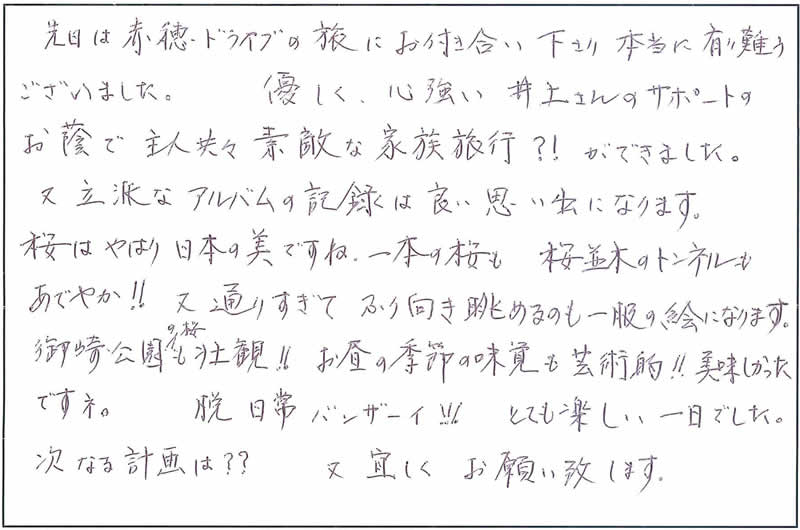 先日は赤穂・ドライブの旅にお付き合い下さり本当に有り難う
ございました。 優しく、心強い井上さんのサポートの
お蔭で主人共々素敵な家族旅行?!ができました。
又立派なアルバムの記録は良い思い出になります。
桜はやはり日本の美ですね。一本の桜も 桜並木のトンネルも
あでやか!! 又通りすぎて ふり向き眺めるのも一服の絵になります。
御崎公園の桜も壮観!! お昼の季節の味覚も芸術的!!美味しかった
ですネ。 脱日常バンザーイ!!! とても楽しい一日でした。
次なる計画は?? 又宜しくお願い致します。